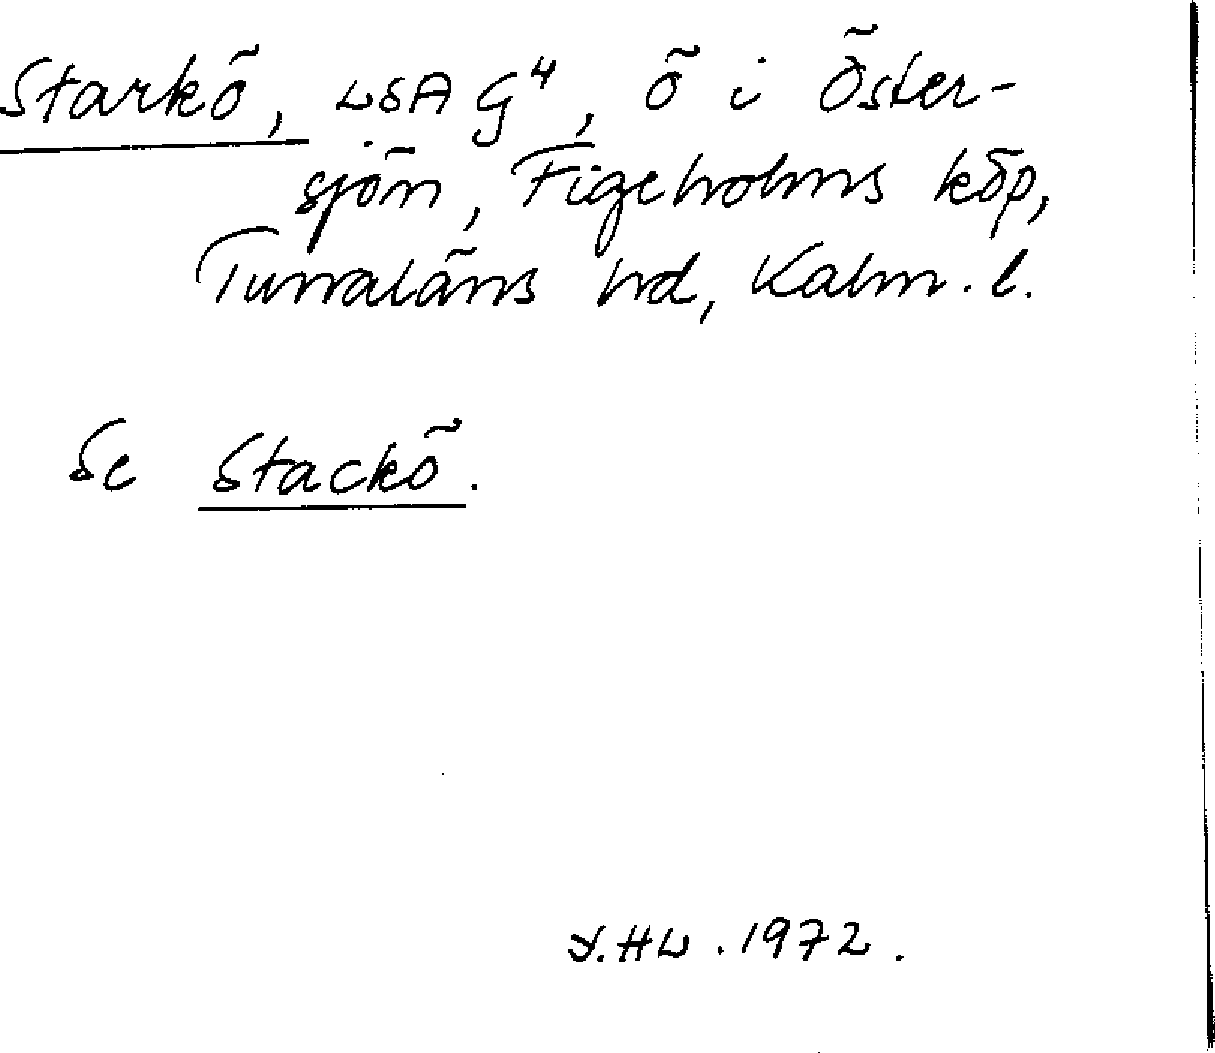 Starkö, LSA G4, ö i Öster-
sjön, Figeholms köp,
Tunaläns hd, Kalm. l.
Se Stackö.
HL. 1972.